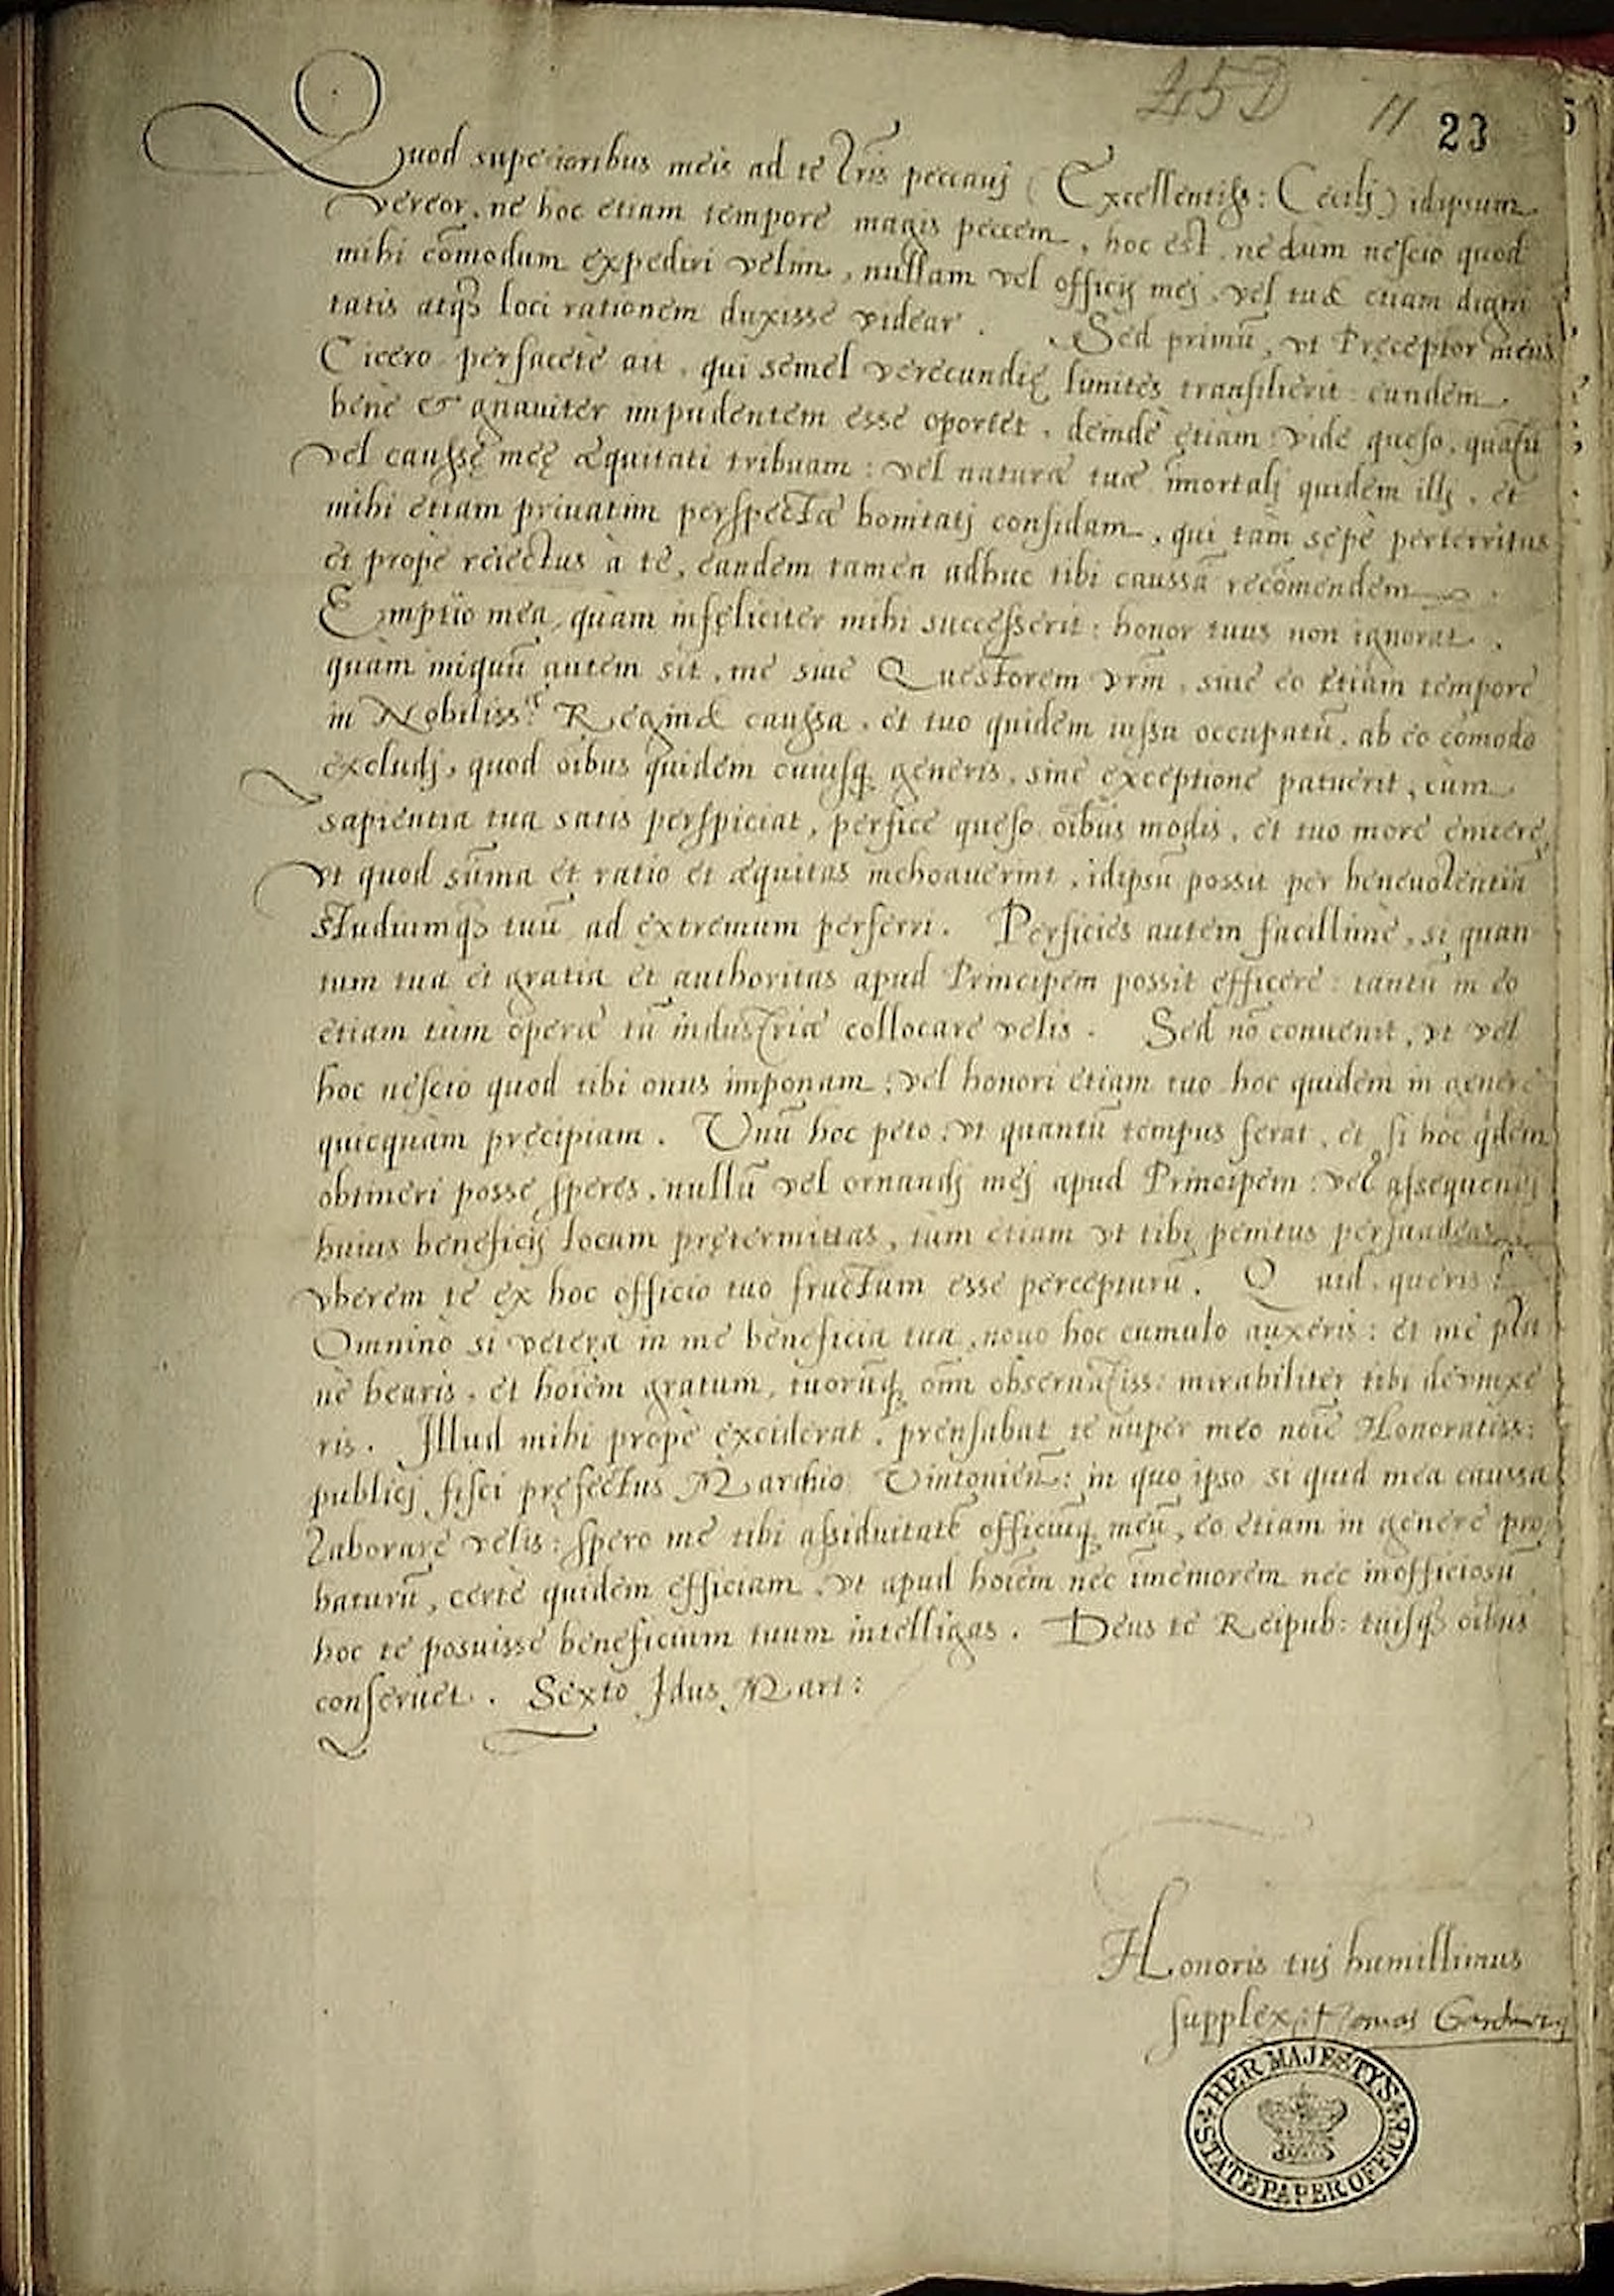 45D
11 23
Quod superioribus meis ad te lr̃is peccauj (Excellentiss: Cecilj) idipsum
vereor, ne hoc etiam tempore magis peccem, hoc est, ne dum nescio quod
mihi cōmodum expediri velim, nullam vel officij mej, vel tuæ etiam digni
tatis atq3 loci rationem duxisse videar. Sed primū, vt Pręceptor meus
Cicero perfacetè ait, qui semel verecundię limites transilierit: eundem
bene & gnauiter impudentem esse oportet, deinde etiam vide quęso, quātū
vel caussę meę æquitati tribuam: vel naturæ tuæ īmortalj quidem illj, et
mihi etiam priuatim perspectæ bonitatj confidam, qui tam sępè perterritus
et propè reiectus à te, eandem tamen adhuc tibi caussā recōmendem.
Emptio mea, quàm infęliciter mihi successerit: honor tuus non ignorat.
quàm iniquū autem sit, me siue Questorem vr̄m, siue eo etiam tempore
in Nobiliss:æ Reginæ caussa, et tuo quidem iussu occupatū, ab eo cōmodo
excludj, quod oībus quidem cuiusq; generis, sine exceptione patuerit, cum
sapientia tua satis perspiciat, perfice quęso oībus modis, et tuo more enitere,
vt quod sūma et ratio et æquitas inchoauerint, idipsū possit per beneuolentiā
studiumq3 tuū ad extremum perferri. Perficies autem facillimè, si quan
tum tua et gratia et authoritas apud Principem possit efficere: tantū in eo
etiam tùm operæ tū industriæ collocare velis. Sed nō conuenit, vt vel
hoc nescio quod tibi onus imponam, vel honori etiam tuo hoc quidem in genere
quicquam pręcipiam. Vnū hoc peto, vt quantū tempus ferat, et si hoc q̇dem
obtineri posse speres, nullū vel ornandj mej apud Principem: vel assequendj
huius beneficij locum prętermittas, tùm etiam vt tibi penitus persuadeas
vberem te ex hoc officio tuo fructum esse percepturū. Quid quęris?
Omninò si vetera in me beneficia tua, nouo hoc cumulo auxeris: et me pla
nè bearis, et hoīem gratum, tuorūq; om̄ obseruātiss: mirabiliter tibi deuinxe
ris. Illud mihi propè exciderat, prensabat te nuper meo noīe Honoratiss:
publicj fisci pręfectus Marchio Vintonien̄: in quo ipso si quid mea caussa
laborare velis: spero me tibi assiduitatē officiūq; meū, eo etiam in genere pro
baturū, certè quidem efficiam, vt apud hoīem nec īmemorem nec inofficiosū
hoc te posuisse beneficium tuum intelligas. Deus te Reipub: tuisq3 oībus
conseruet. Sexto Idus Mart:
Honoris tuj humillimus
supplex: Thomas Gardinerus
HER MAJESTYS
STATE PAPER OFFICE